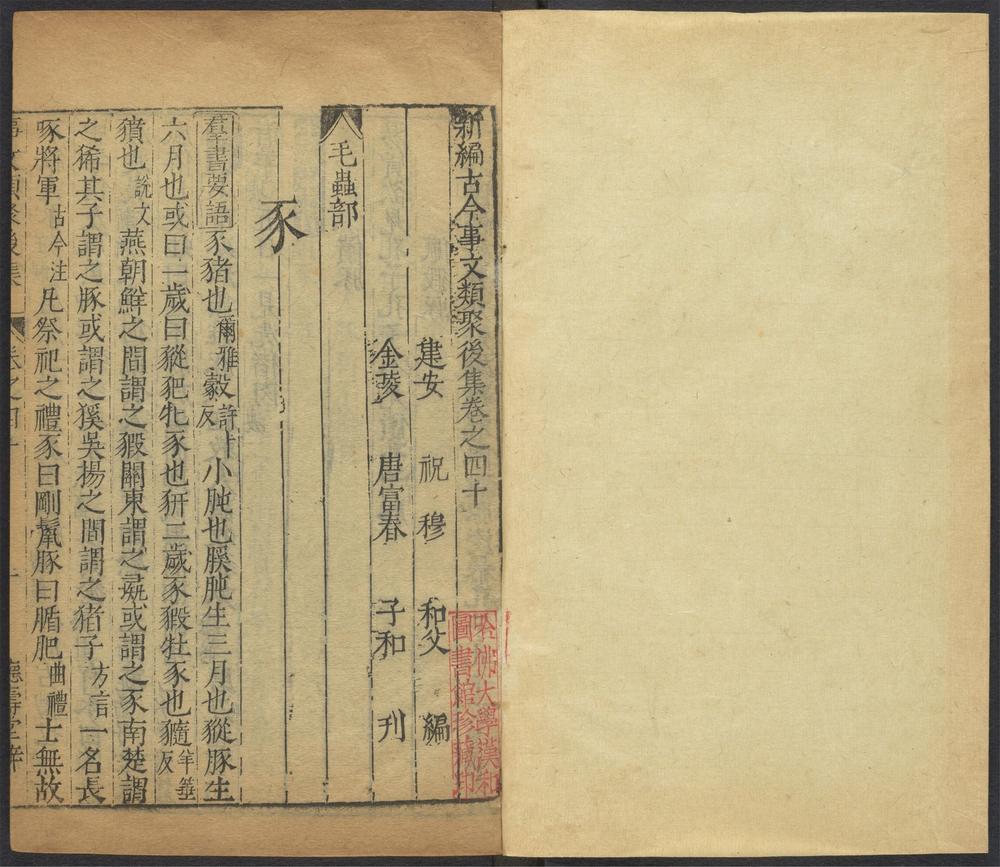 新編古今事文類聚後集卷之四十
建安 祝 穆 和父 編
金陵 唐富春 子和 刊
毛蟲部
豕
羣書要語豕豬也爾雅豰許卜反小肫也豯肫生三月也豵豚生
六月也或曰一歲曰豵豝牝豕也豜三歲豕豭牡豕也䝐羊箠反
豶也說文燕朝鮮之間謂之豭關東謂之彘或謂之豕南楚謂
之豨其子謂之豚或謂之豯吳揚之間謂之猪子方言一名長
啄將軍古今注凡祭祀之禮豕曰剛鬣豚曰腯肥曲禮士無故
事文類聚後集 卷之四十 一 德壽堂梓
哈佛大學漢和
圖書館珍藏印